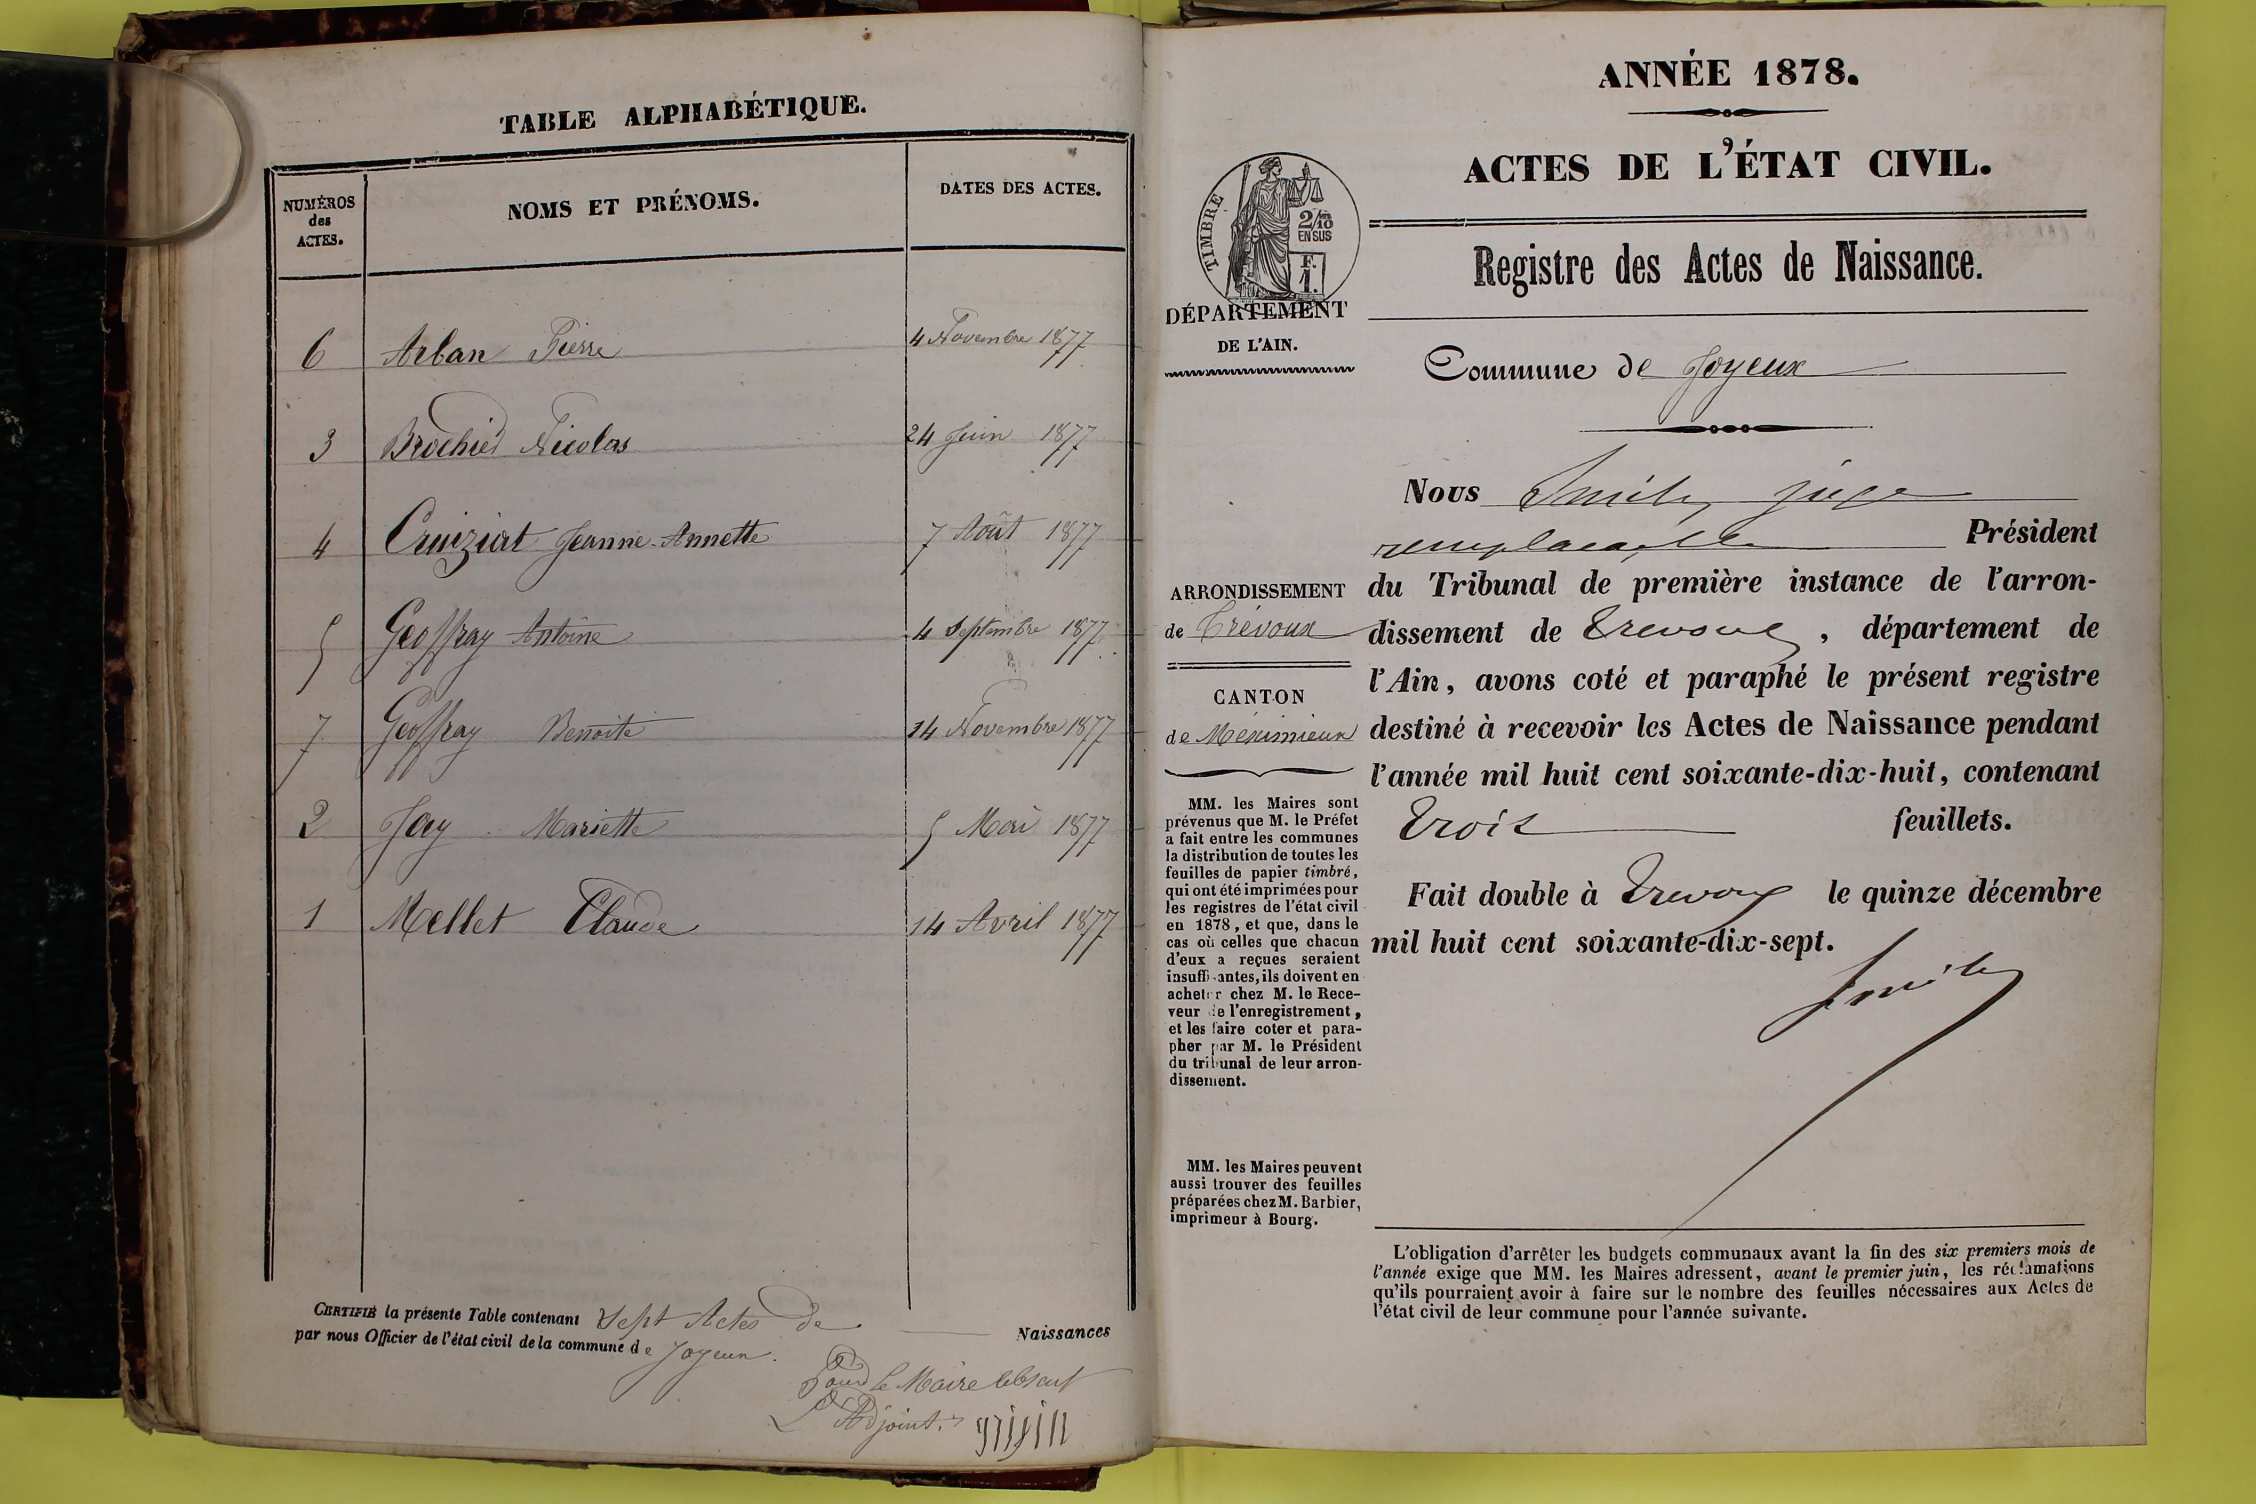 TABLE ALPHABÉTIQUE.
NUMÉROS
des
ACTES.
NOMS ET PRÉNOMS.
DATES DES ACTES.
6 Arban Pierre 4 Novembre 1877
3 Brochier Nicolas 24 Juin 1877
4 Cruiziat Jeanne-Annette 7 Août 1877
5 Geoffray Antoine 4 Septembre 1877
7 Geoffray Benoite 14 Novembre 1877
2 Jay Mariette 5 Mai 1877
1 Mellet Claude 14 Avril 1877
CERTIFIÉ la présente Table contenant Sept Actes de Naissances
par nous Officier de l'état civil de la commune de Joyeux.
Pour le Maire absent
L'Adjoint.
ANNÉE 1878.
ACTES DE L'ÉTAT CIVIL.
Registre des Actes de Naissance.
TIMBRE
2/10
EN SUS
F.
1.
DÉPARTEMENT
DE L'AIN.
Commune de Joyeux
ARRONDISSEMENT
de Trévoux
CANTON
de Méximieux
MM. les Maires sont
prévenus que M. le Préfet
a fait entre les communes
la distribution de toutes les
feuilles de papier timbré,
qui ont été imprimées pour
les registres de l'état civil
en 1878, et que, dans le
cas où celles que chacun
d'eux a reçues seraient
insuffisantes, ils doivent en
acheter chez M. le Rece-
veur de l'enregistrement,
et les faire coter et para-
pher par M. le Président
du tribunal de leur arron-
dissement.
MM. les Maires peuvent
aussi trouver des feuilles
préparées chez M. Barbier,
imprimeur à Bourg.
Nous juge
remplaçant le Président
du Tribunal de première instance de l'arron-
dissement de Trevoux, département de
l'Ain, avons coté et paraphé le présent registre
destiné à recevoir les Actes de Naissance pendant
l'année mil huit cent soixante-dix-huit, contenant
Trois feuillets.
Fait double à Trevoux le quinze décembre
mil huit cent soixante-dix-sept.
L'obligation d'arrêter les budgets communaux avant la fin des six premiers mois de
l'année exige que MM. les Maires adressent, avant le premier juin, les réclamations
qu'ils pourraient avoir à faire sur le nombre des feuilles nécessaires aux Actes de
l'état civil de leur commune pour l'année suivante.